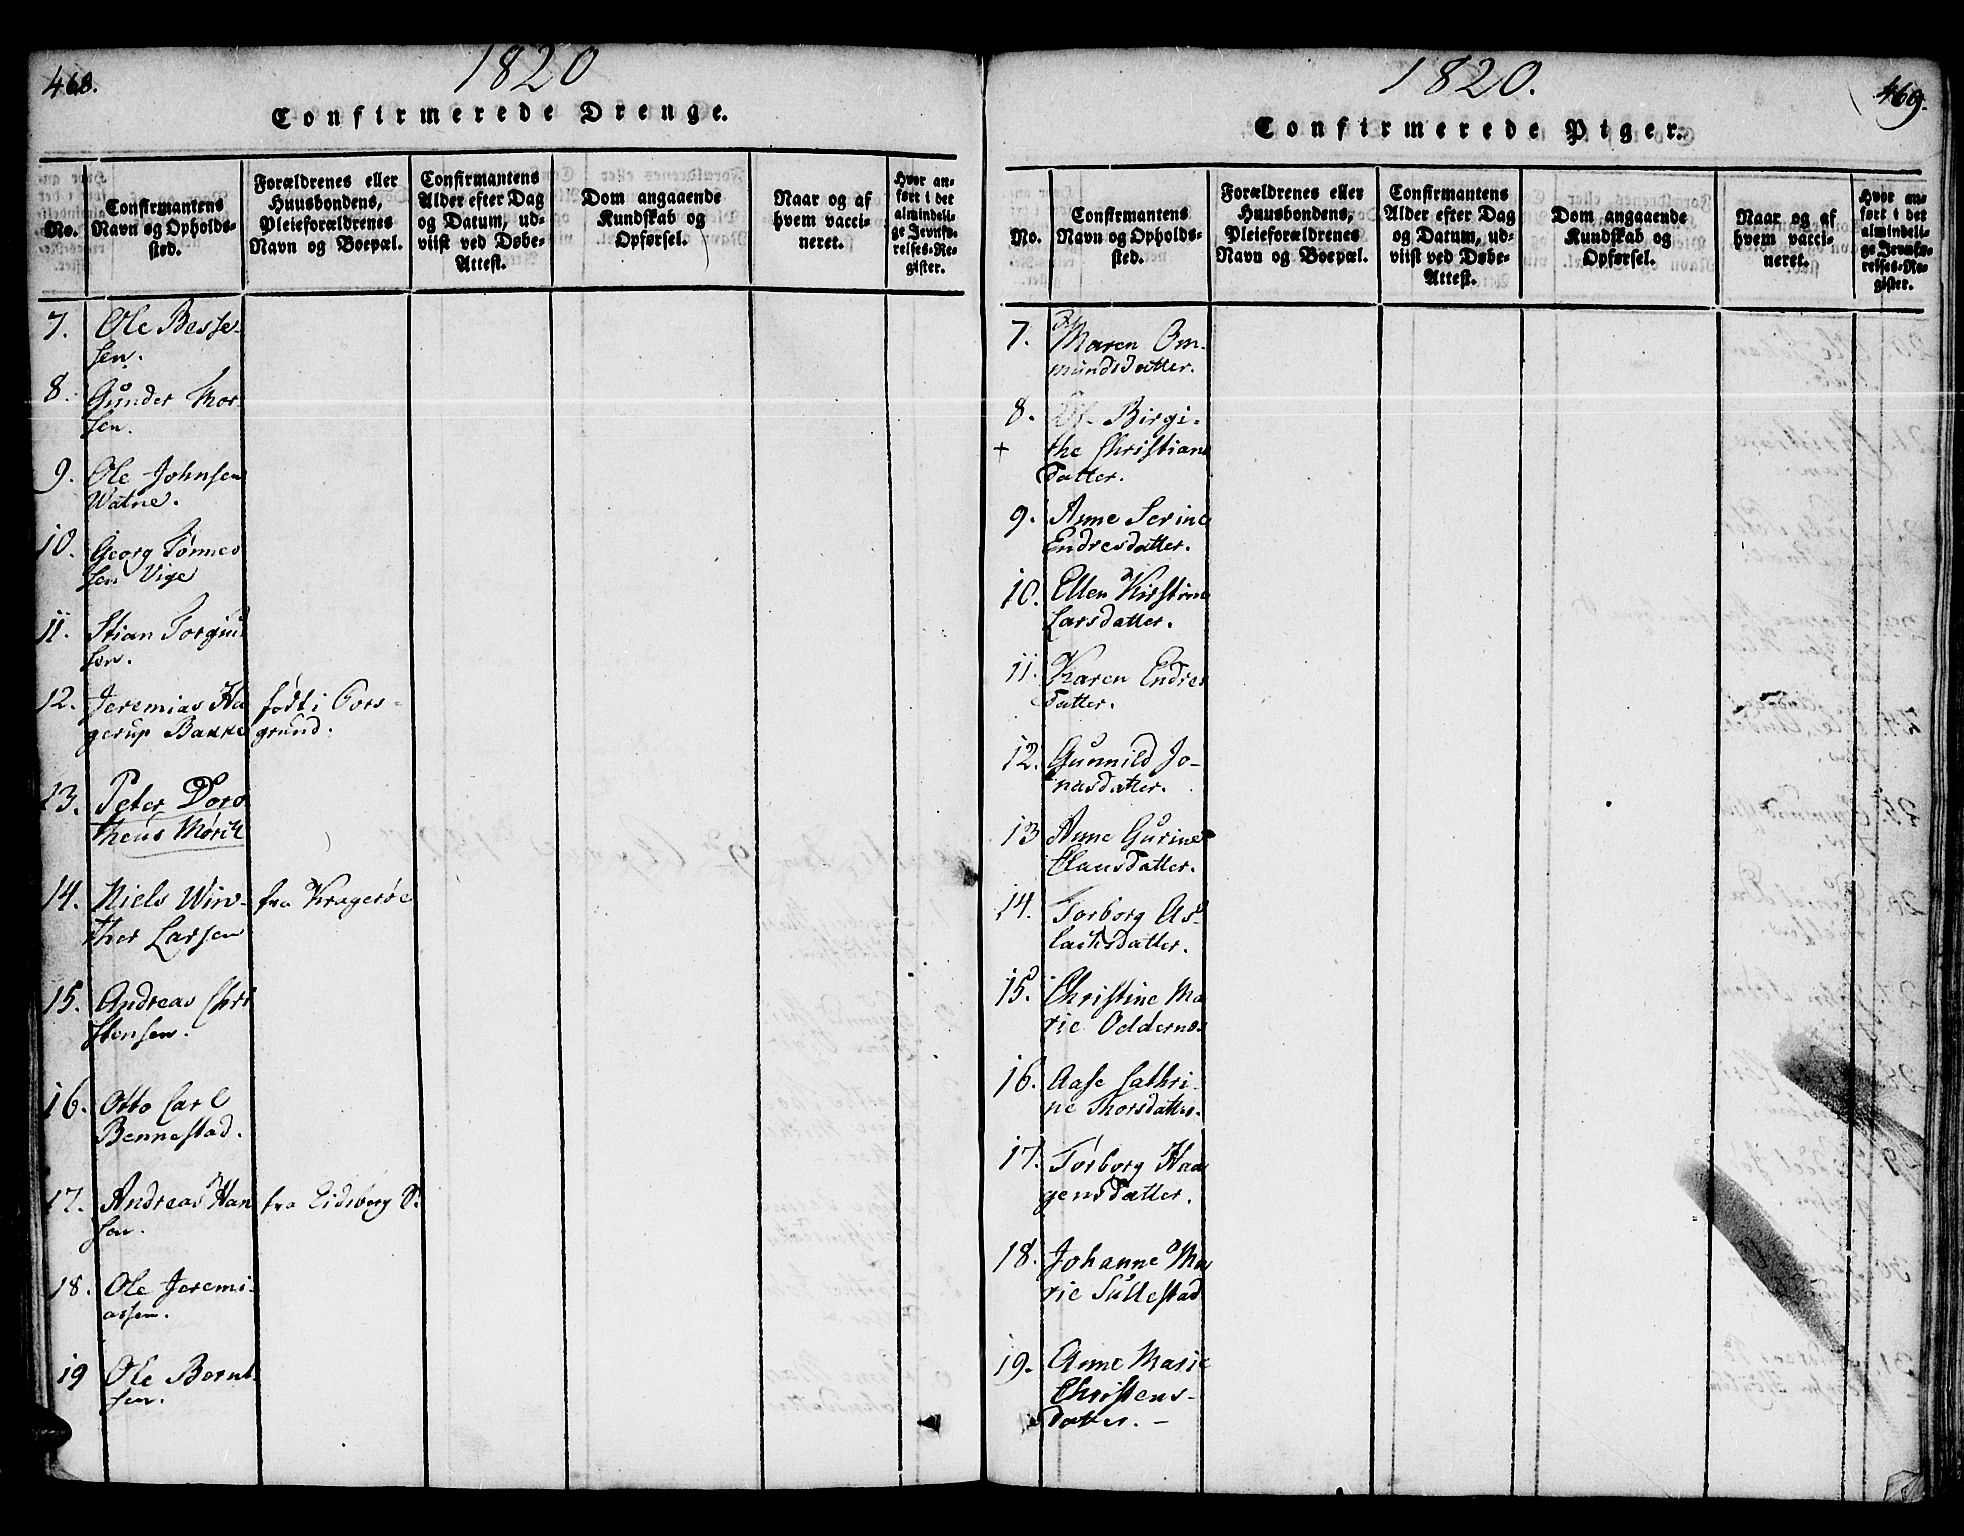 468.
1820
Confirmerede Drenge.
No.
Confirmantens
Navn og Opholds-
sted.
Forældrenes eller
Huusbondens,
Pleieforældrenes
Navn og Boepæl.
Confirmantens
Alder efter Dag
og Datum, ud-
viist ved Døbe-
Attest.
Dom angaaende
Kundskab og
Opførsel.
Naar og af
hvem vacci-
neret.
Hvor an-
ført i det
almindeli-
ge Jevnfø-
relses-Re-
gister.
7. Ole Besse-
sen.
8. Gunder Thor-
sen.
9. Ole Johnsen
Watne.
10. Georg Tønnes
sen Vige
11. Stian Torgius
sen.
12. Jeremias Ha født i Pors-
gerup Bakke grund.
13. Peter Doro
theus Mørch
14. Niels Win- fra Kragerøe
ther Larsen
15. Andreas Chri
stensen.
16. Otto Carl
Bennestad.
17. Andreas Han fra Eidsberg P.
sen.
18. Ole Jeremi-
assen.
19 Ole Bernt
sen.
1820.
469.
Confirmerede Piger.
No.
Confirmantens
Navn og Opholds-
sted.
Forældrenes eller
Huusbondens,
Pleieforældrenes
Navn og Boepæl.
Confirmantens
Alder efter Dag
og Datum, ud-
viist ved Døbe-
Attest.
Dom angaaende
Kundskab og
Opførsel.
Naar og af
hvem vacci-
neret.
Hvor an-
ført i det
almindeli-
ge Jevnfø-
relses-Re-
gister.
7. Maren Om-
mundsdatter.
8. Birgi-
+ the Christians
datter.
9. Anne Serine
Endresdatter.
10. Ellen Kirstine
Larsdatter.
11. Karen Endres
datter.
12. Gunnild Jo-
nasdatter.
13 Anne Gurine
Clausdatter.
14. Torborg As-
lachsdatter.
15. Christine Ma
rie Oddernes
16. Aase Cathri-
ne Thorsdatter.
17. Torborg Haa
gensdatter.
18. Johanne Ma
rie Sullestad
19. Anne Marie
Christens-
datter. -